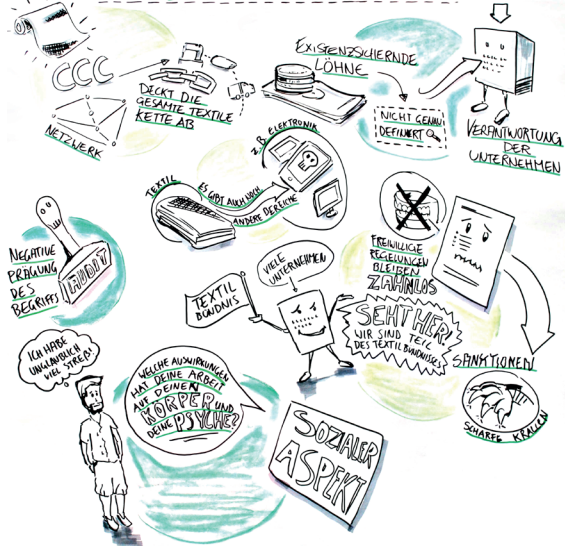 CCC
NETZWERK
DECKT DIE
GESAMTE TEXTILE
KETTE AB
EXISTENZSICHERNDE
LÖHNE
NICHT GENAU
DEFINIERT
VERANTWORTUNG
DER
UNTERNEHMEN
TEXTIL
ES GIBT AUCH NOCH
ANDERE BEREICHE
Z.B. ELEKTRONIK
NEGATIVE
PRÄGUNG
DES
BEGRIFFS
AUDIT
FREIWILLIGE
REGELUNGEN
BLEIBEN
ZAHNLOS
TEXTIL
BÜNDNIS
VIELE
UNTERNEHMEN
SEHT HER!
WIR SIND TEIL
DES TEXTILBÜNDNISSES
SANKTIONEN
SCHARFE KRALLEN
ICH HABE
UNGLAUBLICH
VIEL STREß!
WELCHE AUSWIRKUNGEN
HAT DEINE ARBEIT
AUF DEINEN
KÖRPER UND
DEINE PSYCHE?
SOZIALER
ASPEKT